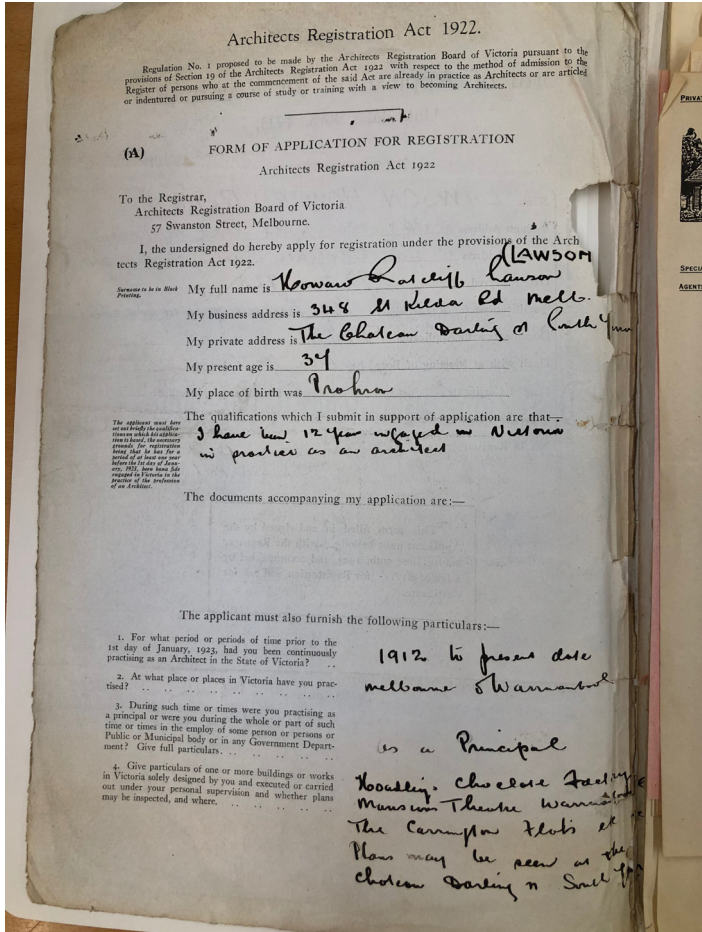 Architects Registration Act 1922.
Regulation No. 1 proposed to be made by the Architects Registration Board of Victoria pursuant to the
provisions of Section 19 of the Architects Registration Act 1922 with respect to the method of admission to the
Register of persons who at the commencement of the said Act are already in practice as Architects or are articled
or indentured or pursuing a course of study or training with a view to becoming Architects.
(A) FORM OF APPLICATION FOR REGISTRATION
Architects Registration Act 1922
To the Registrar,
Architects Registration Board of Victoria
57 Swanston Street, Melbourne.
I, the undersigned do hereby apply for registration under the provisions of the Arch
tects Registration Act 1922.
(LAWSON
Surname to be in Block
Printing.
My full name is Howard Ratcliff Lawson
My business address is 348 St Kilda Rd Melb.
My private address is The Chateau Darling St South
My present age is 37
My place of birth was Prahran
The qualifications which I submit in support of application are that—
The applicant must here
set out briefly the qualifica-
tions on which his applica-
tion is based, the necessary
grounds for registration
being that he has for a
period of at least one year
before the 1st day of Janu-
ary, 1923, been bona fide
engaged in Victoria in the
practice of the profession
of an Architect.
I have been 12 years engaged in Victoria
in practice as an architect
The documents accompanying my application are:—
The applicant must also furnish the following particulars:—
1. For what period or periods of time prior to the
1st day of January, 1923, had you been continuously
practising as an Architect in the State of Victoria? ..
1912 to present date
2. At what place or places in Victoria have you prac-
tised? .. .. .. .. .. .. .. ..
Melbourne & Warrnambool
3. During such time or times were you practising as
a principal or were you during the whole or part of such
time or times in the employ of some person or persons or
Public or Municipal body or in any Government Depart-
ment? Give full particulars. .. .. .. ..
as a Principal
4. Give particulars of one or more buildings or works
in Victoria solely designed by you and executed or carried
out under your personal supervision and whether plans
may be inspected, and where. .. .. .. ..
Hoadleys Choclate Factory
Mansions Theatre
The Carrington Flats
Plans may be seen at the
Chateau Darling St South
PRIVAT
SPECIA
AGENT